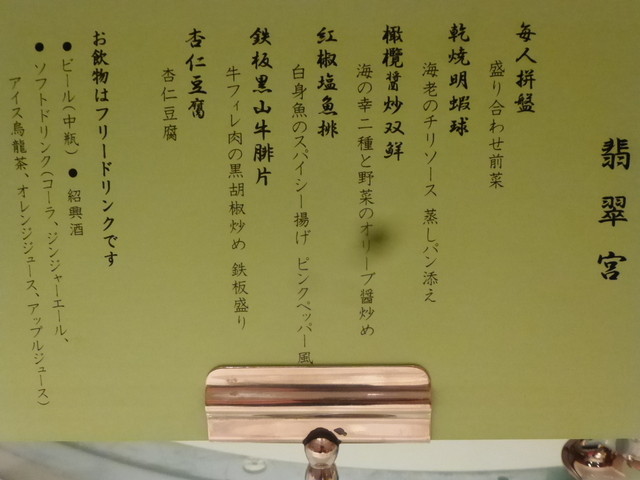 翡翠宮
每人拼盤
盛り合わせ前菜
乾燒明蝦球
海老のチリソース 蒸しパン添え
橄欖醬炒双鮮
海の幸二種と野菜のオリーブ醤炒め
紅椒塩魚排
白身魚のスパイシー揚げ ピンクペッパー風
鉄板黒山牛腓片
牛フィレ肉の黒胡椒炒め 鉄板盛り
杏仁豆腐
杏仁豆腐
お飲物はフリードリンクです
● ビール(中瓶) ● 紹興酒
● ソフトドリンク(コーラ、ジンジャーエール、
アイス烏龍茶、オレンジジュース、アップルジュース)